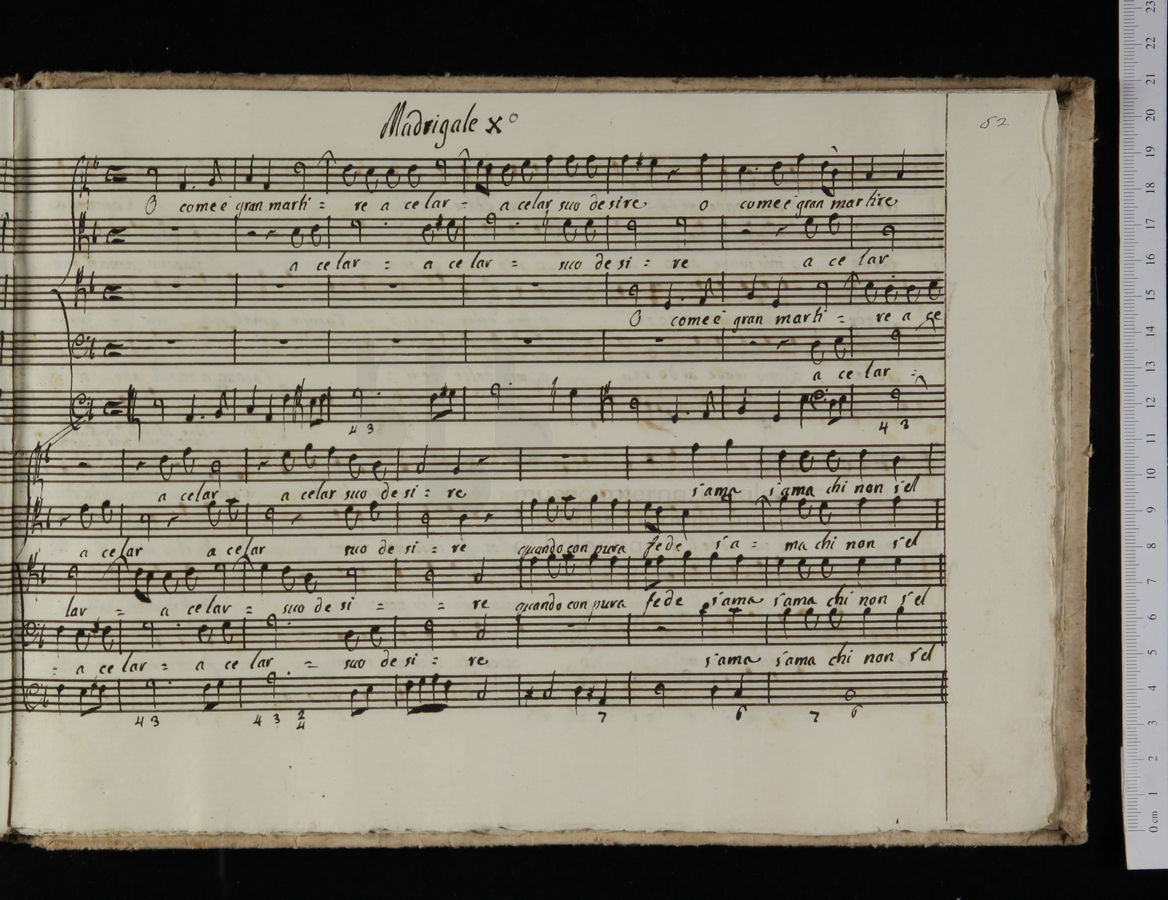 Madrigale Xº
52
O come è gran marti = re a ce lar = a celar suo desire o come è gran martire
a ce lar = a ce lar = suo de si = re a ce lar
O come è gran marti = re a ce
a ce lar =
4 3 4 3
a celar a celar suo de si = re s'ama s'ama chi non s'el
a celar a celar suo de si = re quando con pura fede s'a = ma chi non s'el
lar = a celar = suo de si = = re quando con pura fede s'ama s'ama chi non s'el
= a ce lar = a ce lar = suo de si = re s'ama s'ama chi non s'el
4 3 4 3 2 4 7 6 7 6
23
22
21
20
19
18
17
16
15
14
13
12
11
10
9
8
7
6
5
4
3
2
1
0 cm